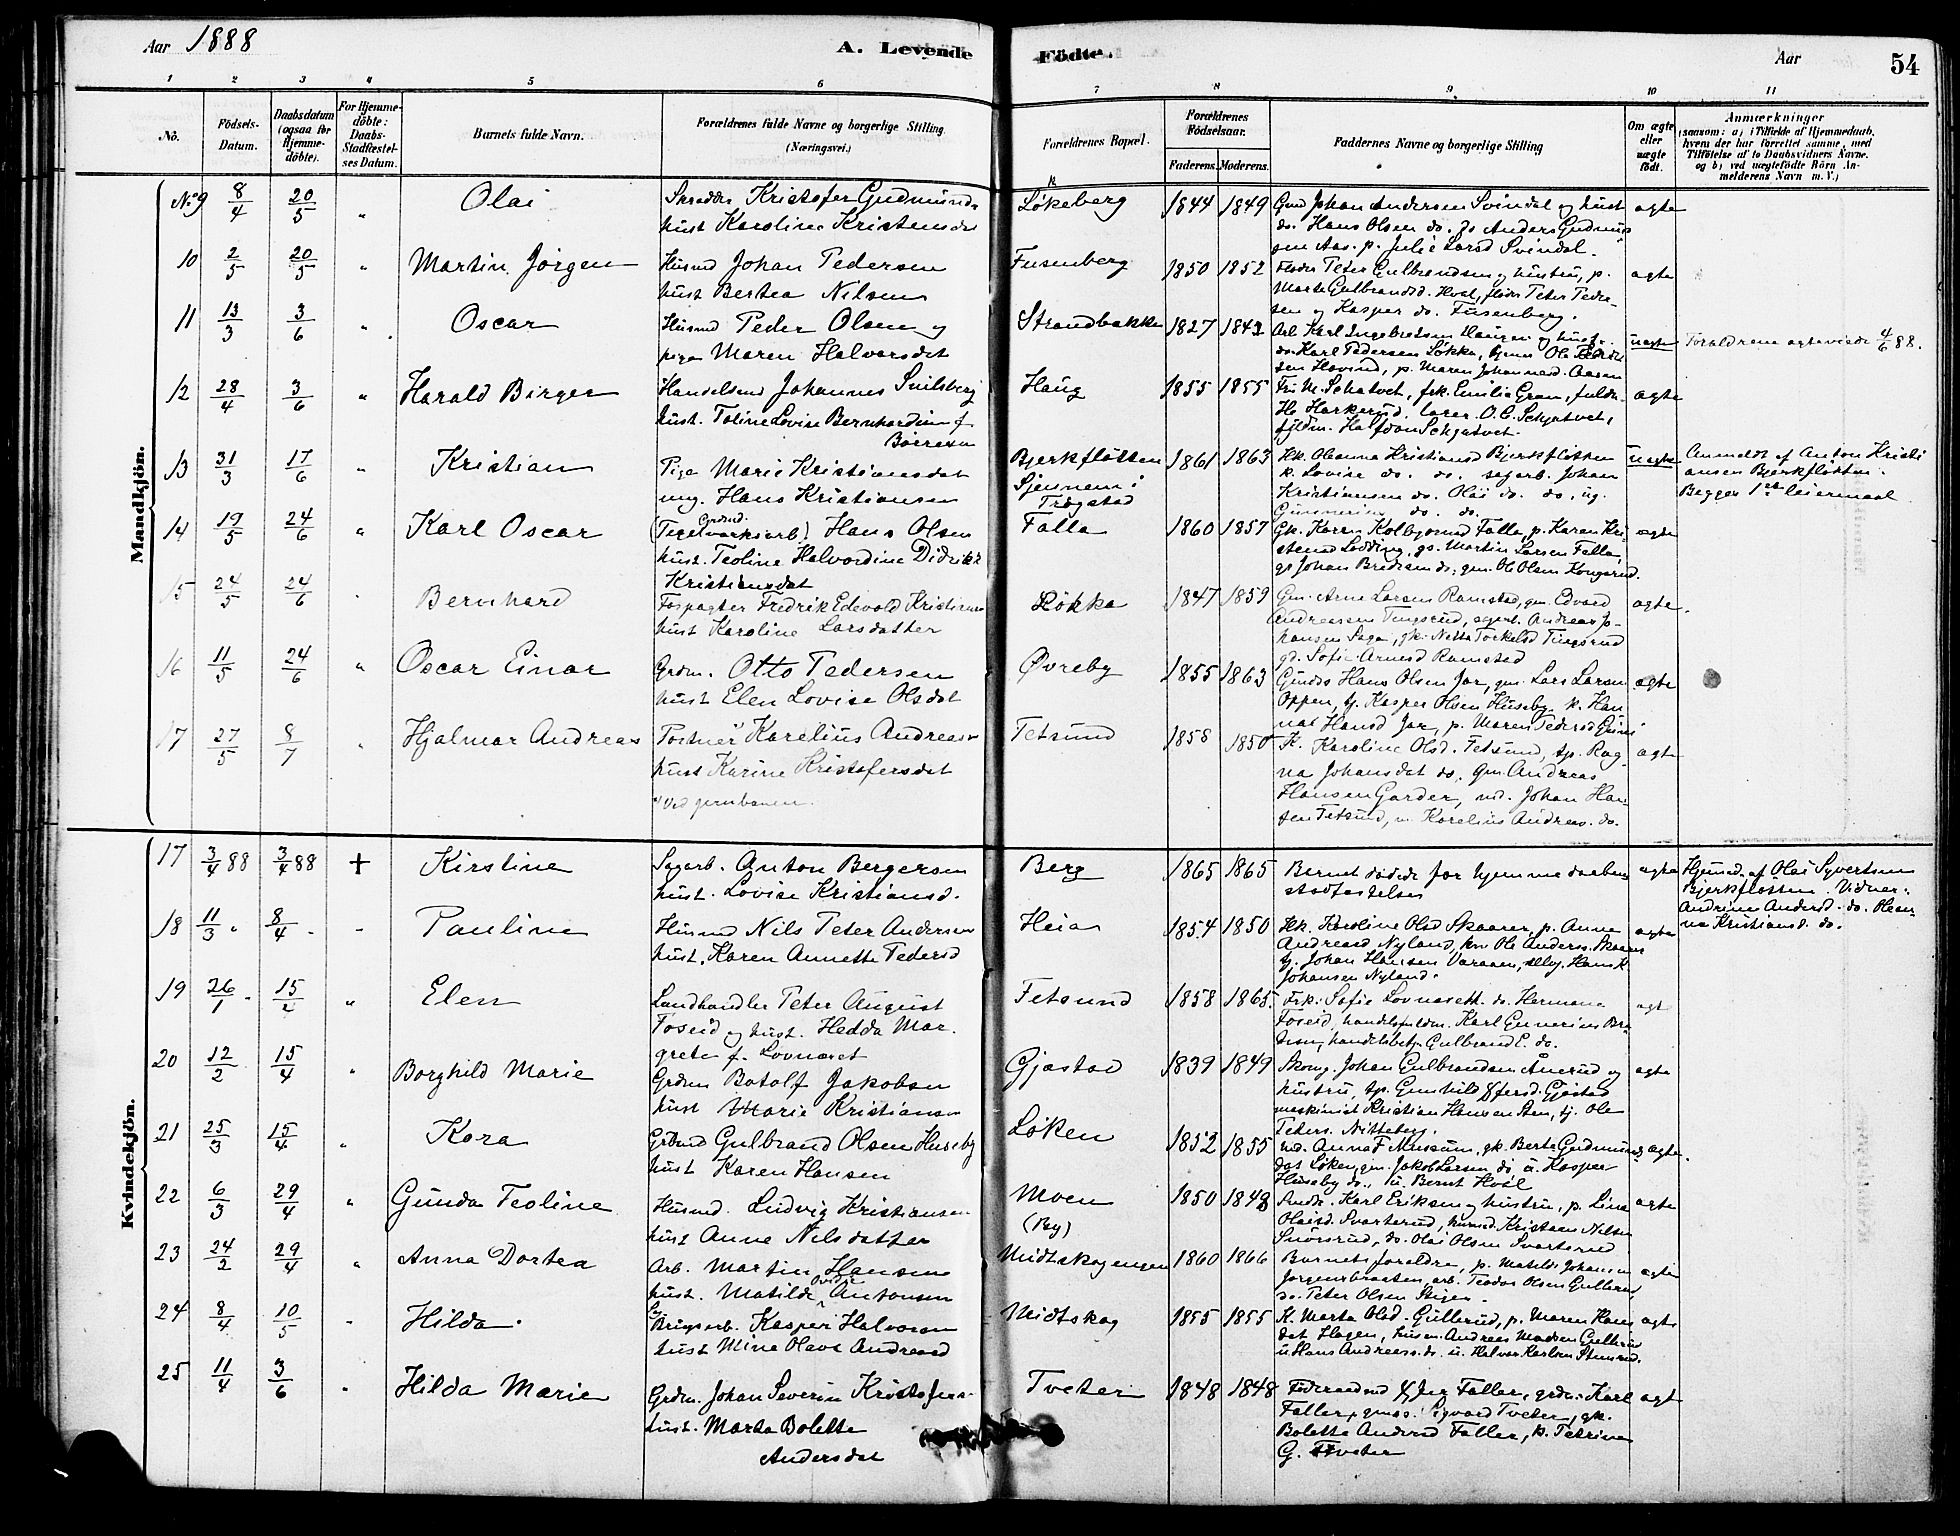 Aar 1888
A. Levende Födte.
Aar
54
1 2 3 4 5 6 7 8 9 10 11
No.
Födsels-Datum.
Daabsdatum (ogsaa for Hjemme-döbte).
For Hjemme-döbte: Daabs-Stadfæstel-ses Datum.
Barnets fulde Navn.
Forældrenes fulde Navne og borgerlige Stilling. (Næringsvei.)
Forældrenes Bopæl.
Forældrenes Födselsaar.
Faderens. Moderens.
Faddernes Navne og borgerlige Stilling
Om ægte eller uægte födt.
Anmærkninger
(saasom: a) i Tilfælde af Hjemmedaab, hvem der har forrettet samme, med Tilföielse af to Daabsvidners Navne, og b) ved uægtefödte Börn An-melderens Navn m. V.)
Mandkjön.
No 9 8/4 20/5 " Olai
Kristofer Gudmunds
hust Karoline Kristensdat
Løkeberg 1844 1849
Gmd Johan Andersen Svindal og hust
do. Hans Olsen do. Anders Gudmus
gen Aas. p. Julie Larsd Svindal.
ægte
10 2/5 20/5 " Martin Jørgen
Husmd Johan Pedersen
hust Bertea Nilsen
Fusenberg 1850 1852
Peter Gulbrandsen og hustru, p.
Marte Gulbrandsd. Hval, Peter Peder-
sen og Kasper do. Fusenberg.
ægte
11 13/3 3/6 " Oscar
Husmd Peder Olsen og
pige Maren Halvorsdat
Strandbakke 1827 1842
Arb. Karl Ingebretsen Haugen og hust.
do. Karl Pedersen Løkka, Ole Peder
sen Hovind, p. Maren Johannesd. Aasen
uægte
Forældrene ægteviede 4/6 88.
12 28/4 3/6 " Harald Birger
Handelsmd Johannes Snilsberg
hust. Toline Lovise Bernhardine f.
Børresen
Haug 1855 1855
Fru M. Schatvet, frk. Emilie Gran, fuldm.
H. Harkerud, lærer O. C. Schjatvet,
fuldm. Halfdan Schjatvet.
ægte
13 31/3 17/6 " Kristian
Pige Marie Kristiansdat
ung. Hans Kristiansen
Bjerkfløtten
Sjennem i
Trøgstad
1861 1863
Hk. Oleanna Kristiansd Bjerkfløtten
k. Lovise do. do. sagarb. Johan
Kristiansen do. Olai do. do., ug.
do. do.
uægte
Anmeldt af Anton Kristi
ansen Bjerkfløtten.
Begges 1ste leiermaal
14 19/5 24/6 " Karl Oscar
Grdmd.
(Tegelværksarb.) Hans Olsen
hust. Teoline Halvordine Didrikke
Kristiansdat
Falla 1860 1857
Gk. Karen Kolbjørnsd Falla, p. Karen Kri
stensd Lodding, gs. Martin Larsen Falla,
gs Johan Bredesen do., gm. Ole Olsen Kongsrud.
ægte
15 24/5 24/6 Bernhard
Forpagter Fredrik Edevold Kristiansen
hust Karoline Larsdatter
Løkka 1847 1859
Gm. Arne Larsen Ramstad, gm. Edvard
Andreassen Tingsrud, sagarb. Andreas Jo-
hansen Saga, gk. Netta Torkelsd Tingsrud
gd. Sofie Arnesd Ramstad
ægte.
16 11/5 24/6 " Oscar Einar
Grdm. Otto Pedersen
hust Elen Lovise Olsdat
Øvreby 1855 1863
Hans Olsen Jar, gm. Lars Larsen
Oppen, tj. Kasper Olsen Huseby, k. Han
na Hansd Jar, p. Maren Pedersd
ægte
17 27/5 8/7 " Hjalmar Andreas
Karelius Andreas
hust Karine Kristofersdat
*) Ved jernbanen.
Fetsund 1858 1850
K. Karoline Olsd. Fetsund, tp. Rag
na Johansdat do., gm Andreas
Hansen Garder, ud. Johan Han
sen Fetsund, u. Karelius Andreas. do.
ægte
Kvindekjön.
17 3/4 88 3/4 88 + Kirstine
Sagarb. Anton Bergersen
hust. Lovise Kristiansd.
Berg 1865 1865
Barnet døde før hjemmedaabens
stadfæstelse
ægte
Hjemd. af Olai Syvertsen
Bjerkfløtten. Vidner:
Andrine Andersd. do. Olean
na Kristiansd. do.
18 11/3 " 8/4 Pauline
Husmd Nils Peter Andersen
hust. Karen Annette Pedersd
Heia 1854 1850
Hk. Karoline Olsd Skaarer, p. Anne
Andreasd Nyland, Ole Anders. Skaarer
tj. Johan Hansen Varaaen, Hans K.
Johansen Nyland.
ægte
19 26/1 15/2 " Elen
Landhandler Peter August
Foseid og hust. Hedda Mar.
grete f. Lovnaset
Fetsund 1858 1865.
Frk. Sofie Lovnaseth. do. Hermana
Foseid, handelsfuldm. Karl Gunerius
handelsbetj. Gulbrand E. do.
ægt
20 12/2 15/4 " Borghild Marie
Grdm Botolf Jakobsen
hust Marie Kristiansen
Gjøstad 1839 1849
Johan Gulbrandsen Ånerud og
hustru, tp. Gunhild Gjøstad
maskinist Kristian Hansen Sten, tj. Ole
Peters. Nitteberg.
ægte
21 25/3 15/4 " Kora
Grdmd Gulbrand Olsen Huseby
hust Karen Hansen
Løken 1852 1855
Anna F Museum, gk. Berte Gudmunds
dat Løken, gm. Jakob Larsen do u. Kasper
Huseby do., u. Bernt Hval
ægte.
22 6/3 29/4 " Gunda Teoline
Husmd. Ludvig Kristiansen
hust Anne Nilsdatter
Moen
(By)
1850 1848
Karl Eriksen og hustru, p. Lina
Olaisd. Svarterud, husmd. Kristian Nilsen
do. Olai Olsen Svarterud
ægte
23 24/2 29/4 " Anna Dortea
Arb. Martin Hansen
hust. Matilde Ovidie Antonsen
Midtskogengen 1860 1866
Barnets forældre, p. Matilde Johansen
Jørgensbraaten, arb. Teodor Olsen Gullerud,
do. Peter Olsen Stigen.
ægte
24 8/4 10/5 Hilda.
Brugsarb. Kasper Halvorsen
hust Mine Olave Andreasd
Midtskog 1855 1855
K. Marta Olsd. Gullerud, p. Maren Hans
dat Hagen, husm. Andreas Madsen Gullerud
u. Hans Andreass. do. u. Halvor Karlsen Stensrud.
ægte
25 11/4 3/6 Hilda Marie
Grdm. Johan Severin Kristofers.
hust. Marta Bolette
Andersdat
Tveter 1848 1848
Føderaadsmd Faller, grdm. Karl
Faller, Sigvard Tveter, gk.
Bolette Andersd Faller, p. Petrine
G. Tveter
ægt